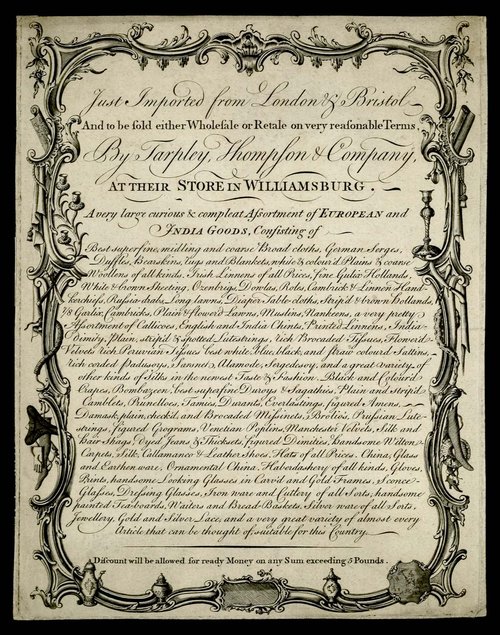 Just Imported from London & Bristol
And to be sold either Wholesale or Retale on very reasonable Terms,
By Tarpley, Thompson & Company,
AT THEIR STORE IN WILLIAMSBURG.
A very large curious & compleat Assortment of EUROPEAN and
INDIA GOODS, Consisting of
Best superfine, midling and coarse Broad cloths, German Serges,
Duffils, Bearskins, Rugs and Blankets, white & colour'd Plains & coarse
Woollens of all kinds, Irish Linnens of all Prices, fine Gulix Hollands,
White & brown Sheeting, Ozenbrigs, Dowlas, Roles, Cambrick & Linnen Hand-
kerchiefs, Russia drabs, Long lawns, Diaper Table cloths, Strip'd & brown Hollands,
7/8 Garlix, Cambricks, Plain & flower'd Lawns, Muslins, Nankeens, a very pretty
Assortment of Callicoes, English and India Chints, Printed Linnens, India
Dimity, Plain, strip'd & spotted Lutestrings, Rich Brocaded Tissues, Flower'd
Velvets, Rich Peruvian Tissues, best white, blue, black, and straw colour'd Sattins,
Rich corded Padusoys, Tannets, Alamode, Sergedesoy, and a great variety of
other kinds of Silks in the newest Taste & Fashion. Black and Colour'd
Crapes, Bombazeen, best superfine Duroys & Sagathies, Plain and strip'd
Camblets, Prunelloes, Tamies, Durants, Everlastings, figured Amens,
Damask, plain, check'd, and Brocaded Missinets, Brolios, Prussian Lute-
strings, figured Grograms, Venetian Poplins, Manchester Velvets, Silk and
Hair Shags, Dyed Jeans & Thicksets, figured Dimities, handsome Wilton
Carpets, Silk, Callamanco & Leather Shoes, Hats of all Prices, China, Glass
and Earthen ware, Ornamental China, Haberdashery of all kinds, Gloves,
Prints, handsome Looking Glasses in Carv'd and Gold Frames, Sconce
Glasses, Dressing Glasses, Iron ware and Cutlery of all Sorts, handsome
painted Tea-boards, Waiters and Bread-Baskets, Silver ware of all Sorts,
Jewellery, Gold and Silver Lace, and a very great variety of almost every
Article that can be thought of, suitable for this Country.
A Discount will be allowed for ready Money on any Sum exceeding 5 Pounds.